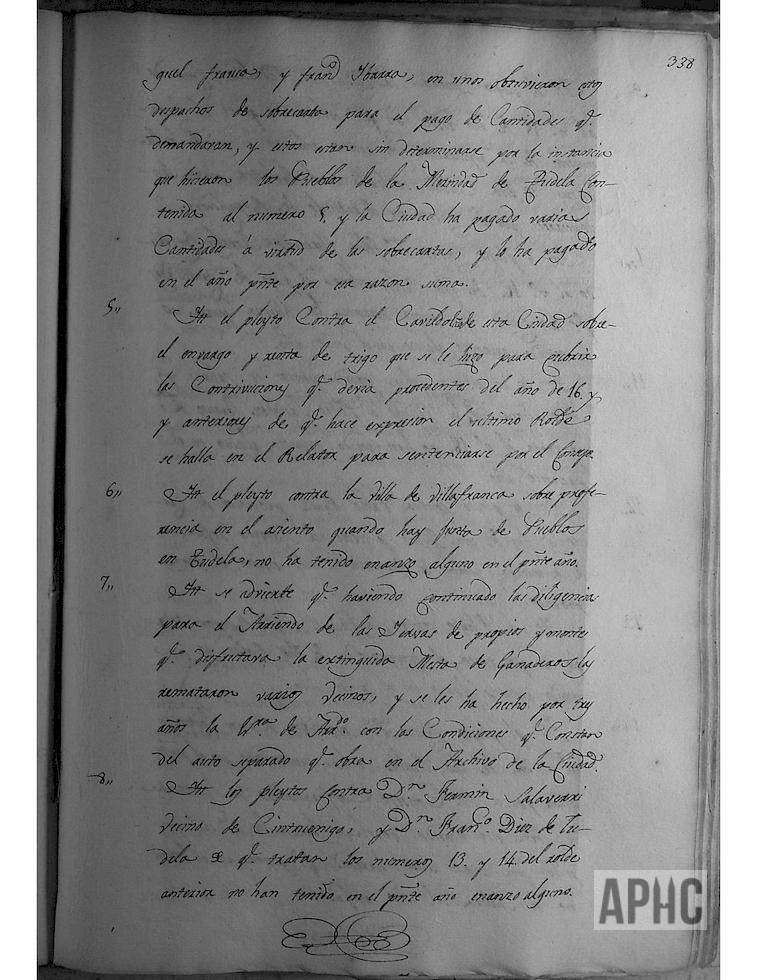 338
guel franca, y fran.co Ybarra, en unos obtuvieron estos
despachos de sobrecarta para el pago de Cantidades q.e
demandaran, y estos estan sin determinarse por la instancia
que hicieron los Pueblos de la Merindad de Tudela Con-
tenida al numero 5. y la Ciudad ha pagado varias
Cantidades á virtud de las sobrecartas, y lo ha pagado
en el año pnte por esa razon suma.
5,, Itt el pleyto Contra el Cavildo de esta Ciudad sobre-
el envargo y renta de trigo que se le hizo para cubrir
las Contriviciones q.e devia procedentes del año de 16. y
y anteriores de q.e hace expresion el ultimo Rolde
se halla en el Relator para sentenciarse por el Consejo
6,, Itt el pleyto contra la villa de Villafranca sobre prefe-
rencia en el asiento quando hay Junta de Pueblos
en Tudela, no ha tenido enanzo alguno en el pnte año.
7,, Itt se advierte q.e haviendo continuado las diligencias
para el Arriendo de las Yervas de propios y montes
q.e disfrutava la extinguida Mesta de Ganaderos los
remataron varios vecinos, y se les ha hecho por tres
años la Esra de Arr.o con las Condiciones q.e Constan
del auto separado q.e obra en el Archivo de la Ciudad.
8,, Itt los pleytos Contra D.n Fermin Salaverri
vecino de Cintruenigo, y D.n Fran.co Diez de Tu-
dela de q.e tratan los numeros 13. y 14. del rolde
anterior no han tenido en el pnte año enanzo alguno.
APHC